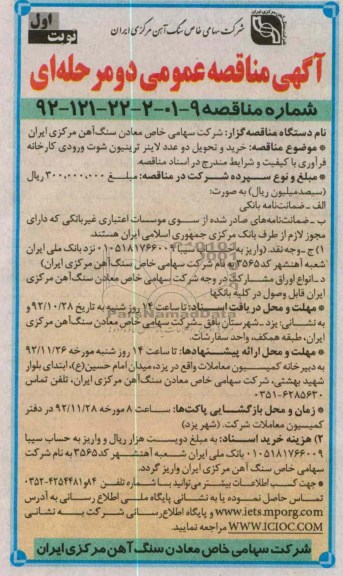 شرکت سهامی خاص سنگ آهن مرکزی ایران
نوبت اول
آگهی مناقصه عمومی دو مرحله‌ای
شماره مناقصه ۹-۰۱-۲-۲۲-۱۲۱-۹۲
نام دستگاه مناقصه‌گزار: شرکت سهامی خاص معادن سنگ‌آهن مرکزی ایران
* موضوع مناقصه: خرید و تحویل دو عدد لاینر ترینیون شوت ورودی کارخانه
فرآوری با کیفیت و شرایط مندرج در اسناد مناقصه.
* مبلغ و نوع سپرده شرکت در مناقصه: مبلغ ۳۰۰,۰۰۰,۰۰۰ ریال
(سیصد میلیون ریال) به صورت:
الف - ضمانت‌نامه بانکی
ب - ضمانت‌نامه‌های صادر شده از سوی موسسات اعتباری غیربانکی که دارای
مجوز لازم از طرف بانک مرکزی جمهوری اسلامی ایران هستند.
۱) ج - وجه نقد. (واریز به حساب سیبا ۰۱۰۵۱۸۱۷۶۶۰۰۹ نزد بانک ملی ایران
شعبه آهنشهر کد ۳۵۶۵ به نام شرکت سهامی خاص سنگ‌آهن مرکزی ایران)
د - انواع اوراق مشارکت در وجه شرکت سهامی خاص معادن سنگ‌آهن مرکزی
ایران قابل وصول در کلیه بانکها
* مهلت و محل دریافت اسناد: تا ساعت ۱۴ روز شنبه به تاریخ ۹۲/۱۰/۲۸ و
به نشانی: یزد - شهرستان بافق - شرکت سهامی خاص معادن سنگ‌آهن مرکزی
ایران، طبقه همکف، واحد سفارشات.
* مهلت و محل ارائه پیشنهادها: تا ساعت ۱۴ روز شنبه مورخه ۹۲/۱۱/۲۶
به دبیرخانه کمیسیون معاملات واقع در یزد، میدان امام حسین(ع)، ابتدای بلوار
شهید بهشتی، شرکت سهامی خاص معادن سنگ‌آهن مرکزی ایران، تلفن تماس
۰۳۵۱-۶۲۸۵۶۳۰
* زمان و محل بازگشایی پاکت‌ها: ساعت ۸ مورخه ۹۲/۱۱/۲۸ در دفتر
کمیسیون معاملات شرکت. (شهر یزد)
۲) هزینه خرید اسناد: به مبلغ دویست هزار ریال و واریز به حساب سیبا
۰۱۰۵۱۸۱۷۶۶۰۰۹ بانک ملی ایران شعبه آهنشهر کد ۳۵۶۵ به نام شرکت
سهامی خاص سنگ آهن مرکزی ایران واریز گردد.
* جهت کسب اطلاعات بیشتر می‌توانید با شماره تلفن ۱۴ و ۴۲۵۴۴۸۱-۰۳۵۲
تماس حاصل نموده یا به نشانی پایگاه ملی اطلاع رسانی به آدرس
www.iets.mporg.com و پایگاه اطلاع‌رسانی شرکت به نشانی
WWW.ICIOC.COM مراجعه نمایید.
شرکت سهامی خاص معادن سنگ آهن مرکزی ایران